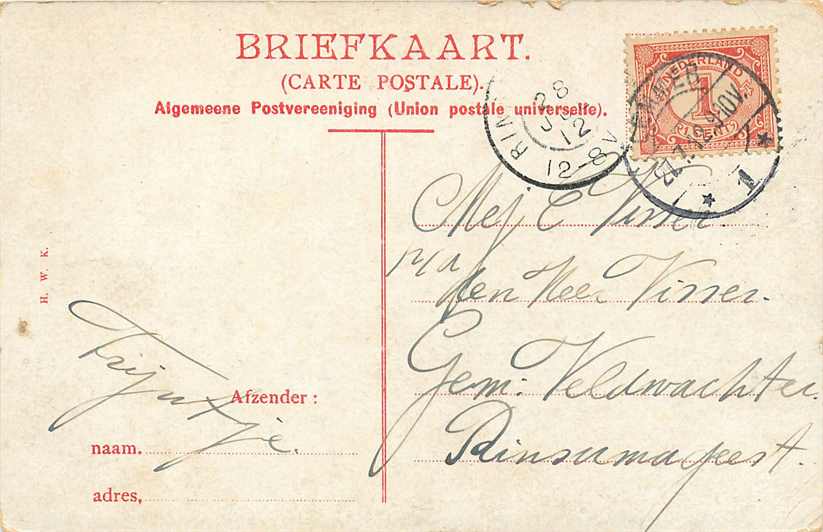 BRIEFKAART.
(CARTE POSTALE).
Algemeene Postvereeniging (Union postale universelle).
NEDERLAND
1
CENT
28
12
12-8V
1
Mej C Visser
p/a
den Heer Visser.
Gem: Veldwachter.
Rinsumageest.
H. W. K.
Trijntje.
Afzender:
naam.
adres,